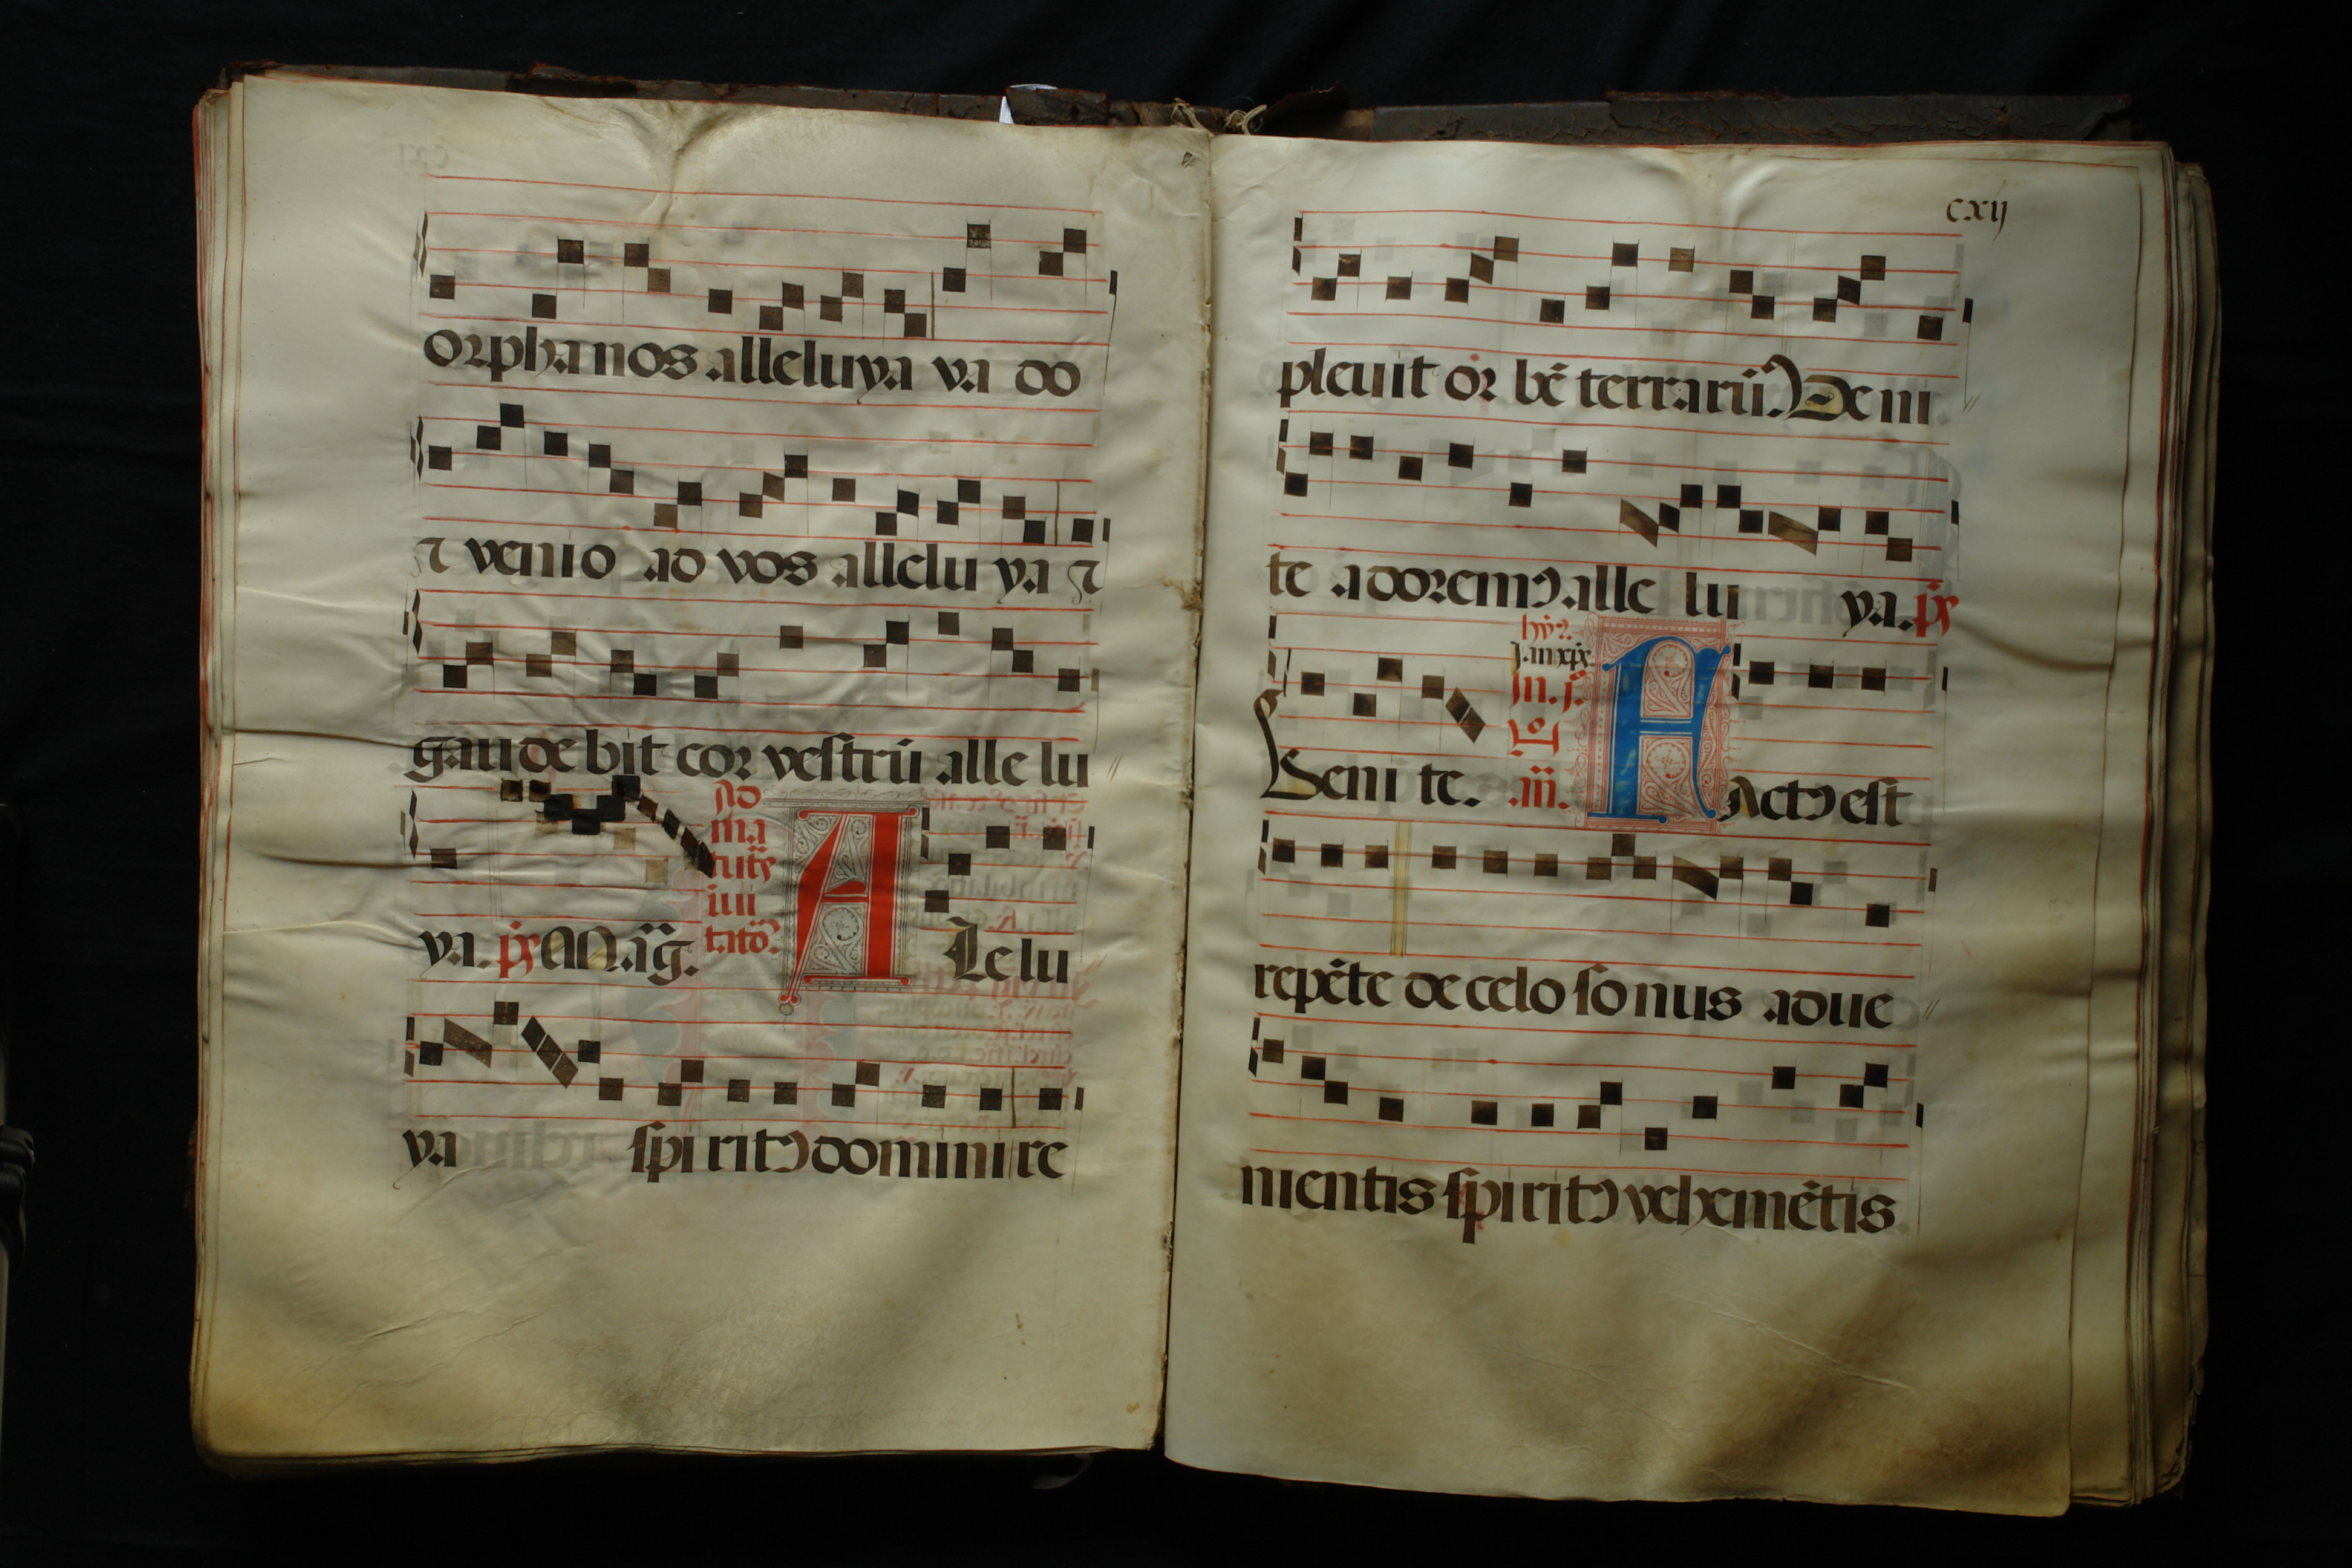 orphanos alleluya va do
⁊ venio ad vos allelu ya ⁊
gaudebit cor vestrū alle lu
ya. p̄s Mag̃.
Ad
ma
tut̄s
īui
tatōꝫ
A Lelu
ya spiritꝰ domini re
cxij
pleuit or bē terrarū. Ueni
te adoremꝰ alle lu ya. p̄s
Ueni te.
hȳꝫ
Jn. j.
.iii.
F Actꝰ est
repēte de celo sonus adue
nientis spiritꝰ vehemētis